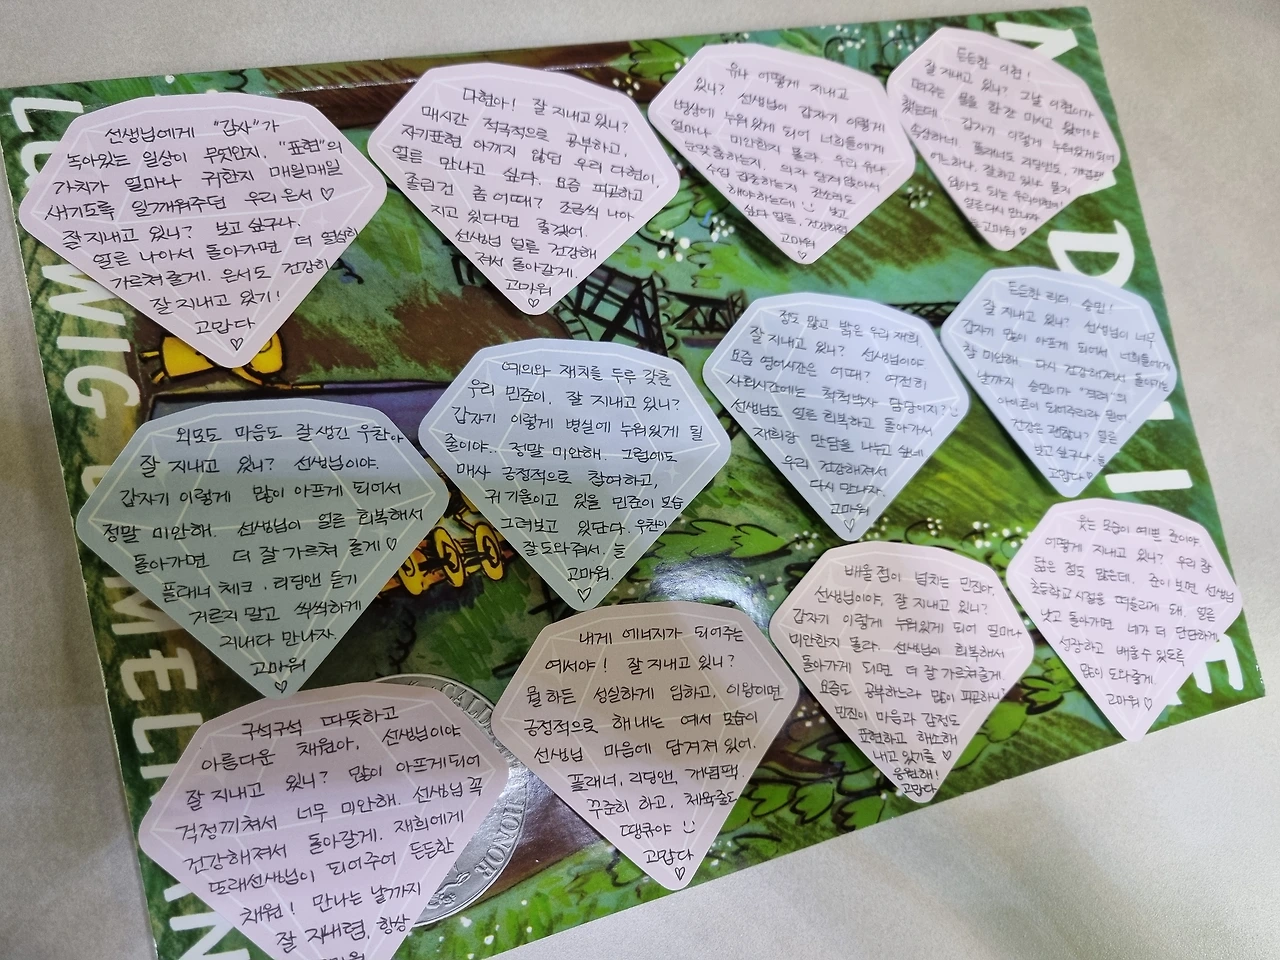 선생님에게 "감사"가
녹아있는 일상이 무엇인지, "표현"의
가치가 얼마나 귀한지 매일매일
새기도록 일깨워주던 우리 은서♡
잘 지내고 있니? 보고 싶구나.
얼른 나아서 돌아가면 더 열심히
가르쳐 줄게. 은서도 건강히
잘 지내고 있기!
고맙다
♡
다현아! 잘 지내고 있니?
매시간 적극적으로 공부하고,
자기표현 아끼지 않던 우리 다현이.
얼른 만나고 싶다. 요즘 피곤하고
졸린건 좀 어때? 조금씩 나아
지고 있다면 좋겠어.
선생님 얼른 건강해
져서 돌아갈게.
고마워
♡
유나 어떻게 지내고
있니? 선생님이 갑자기 이렇게
병상에 누워있게 되어 너희들에게
얼마나 미안한지 몰라. 우리 유나,
눈맞춤하는지, 의자 당겨 앉아서
수업 집중하는지 잔소리도
해야하는데 보고
싶다 얼른. 건강하렴
고마워
♡
든든한 이현!
잘 지내고 있니? 그날 이현이가
떠다주는 물을 한 잔 마시고 왔어야
했는데 갑자기 이렇게 누워있게되어
속상하네. 플래너도 리딩앤도, 개념팩
어느하나, 잘하고 있나 묻지
않아도 되는 우리이현이!
얼른 다시 만나자
고마워♡
외모도 마음도 잘생긴 우찬아
잘 지내고 있니? 선생님이야.
갑자기 이렇게 많이 아프게 되어서
정말 미안해. 선생님이 얼른 회복해서
돌아가면 더 잘 가르쳐 줄게♡
플래너 체크, 리딩앤 듣기
거르지 말고 씩씩하게
지내다 만나자.
고마워
♡
예의와 재치를 두루 갖춘
우리 민준이. 잘 지내고 있니?
갑자기 이렇게 병실에 누워있게 될
줄이야.. 정말 미안해. 그럼에도
매사 긍정적으로 참여하고,
귀 기울이고 있을 민준이 모습
그려보고 있단다. 우찬이
잘 도와줘서, 늘
고마워.
♡
정도 많고 밝은 우리 재희
잘 지내고 있니? 선생님이야
요즘 영어시간은 어때? 여전히
사회시간에는 척척박사 담당이지?
선생님도 얼른 회복하고 돌아가서
재희랑 만담을 나누고 싶네
우리 건강해져서
다시 만나자.
고마워
♡
든든한 리더, 승민!
잘 지내고 있니? 선생님이 너무
갑자기 많이 아프게 되어서 너희들에게
참 미안해. 다시 건강해져서 돌아가는
날까지 승민이가 "격려"의
아이콘이 되어주리라 믿어.
건강은 괜찮니? 얼른
보고 싶구나. 늘
고맙다♡
구석구석 따뜻하고
아름다운 채원아, 선생님이야
잘 지내고 있니? 많이 아프게되어
걱정끼쳐서 너무 미안해. 선생님 꼭
건강해져서 돌아갈게. 재희에게
또래선생님이 되어주어 든든한
채원! 만나는 날까지
잘 지내렴, 항상
내게 에너지가 되어주는
예서야! 잘 지내고 있니?
뭘 하든 성실하게 임하고, 이왕이면
긍정적으로 해내는 예서 모습이
선생님 마음에 담겨져 있어.
플래너, 리딩앤, 개념팩.
꾸준히 하고, 체육줄도
땡큐야
고맙다
♡
배울점이 넘치는 민진아,
선생님이야, 잘 지내고 있니?
갑자기 이렇게 누워있게 되어 얼마나
미안한지 몰라. 선생님이 회복해서
돌아가게 되면 더 잘 가르쳐줄게.
요즘도 공부하느라 많이 피곤하니?
민진이 마음과 감정도
표현하고 해소해
내고 있기를♡
응원해!
고맙다
웃는 모습이 예쁜 준이야
어떻게 지내고 있니? 우리 참
닮은 점도 많은데. 준이 보면 선생님
초등학교 시절을 떠올리게 돼. 얼른
낫고 돌아가면 네가 더 단단하게
성장하고 배울수 있도록
많이 도와줄게.
고마워♡
LUDWIG BEMELMAN
MADELINE
HONOR